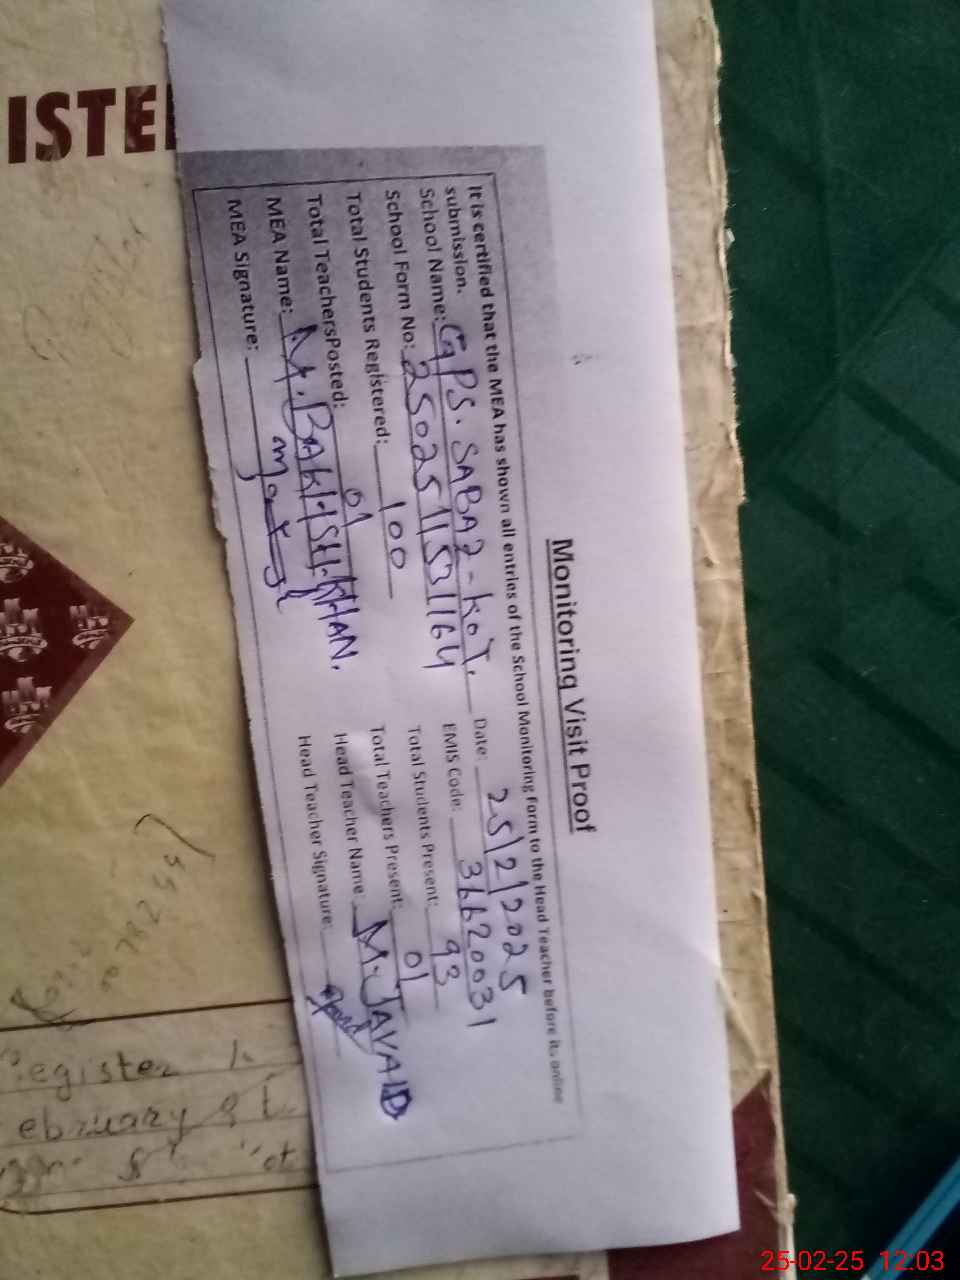 ISTE
Monitoring Visit Proof
It is certified that the MEA has shown all entries of the School Monitoring Form to the Head Teacher before its online
submission.
School Name: GPS. SABAZ-KOT. Date: 25/2/2025
School Form No: 2502511531164 EMIS Code: 36620031
Total Students Registered: 100 Total Students Present: 93
Total TeachersPosted: 01 Total Teachers Present: 01
MEA Name: M. BAKHSH KHAN. Head Teacher Name: M. JAVAID
MEA Signature: Head Teacher Signature:
egister
ebruary
25-02-25 12.03